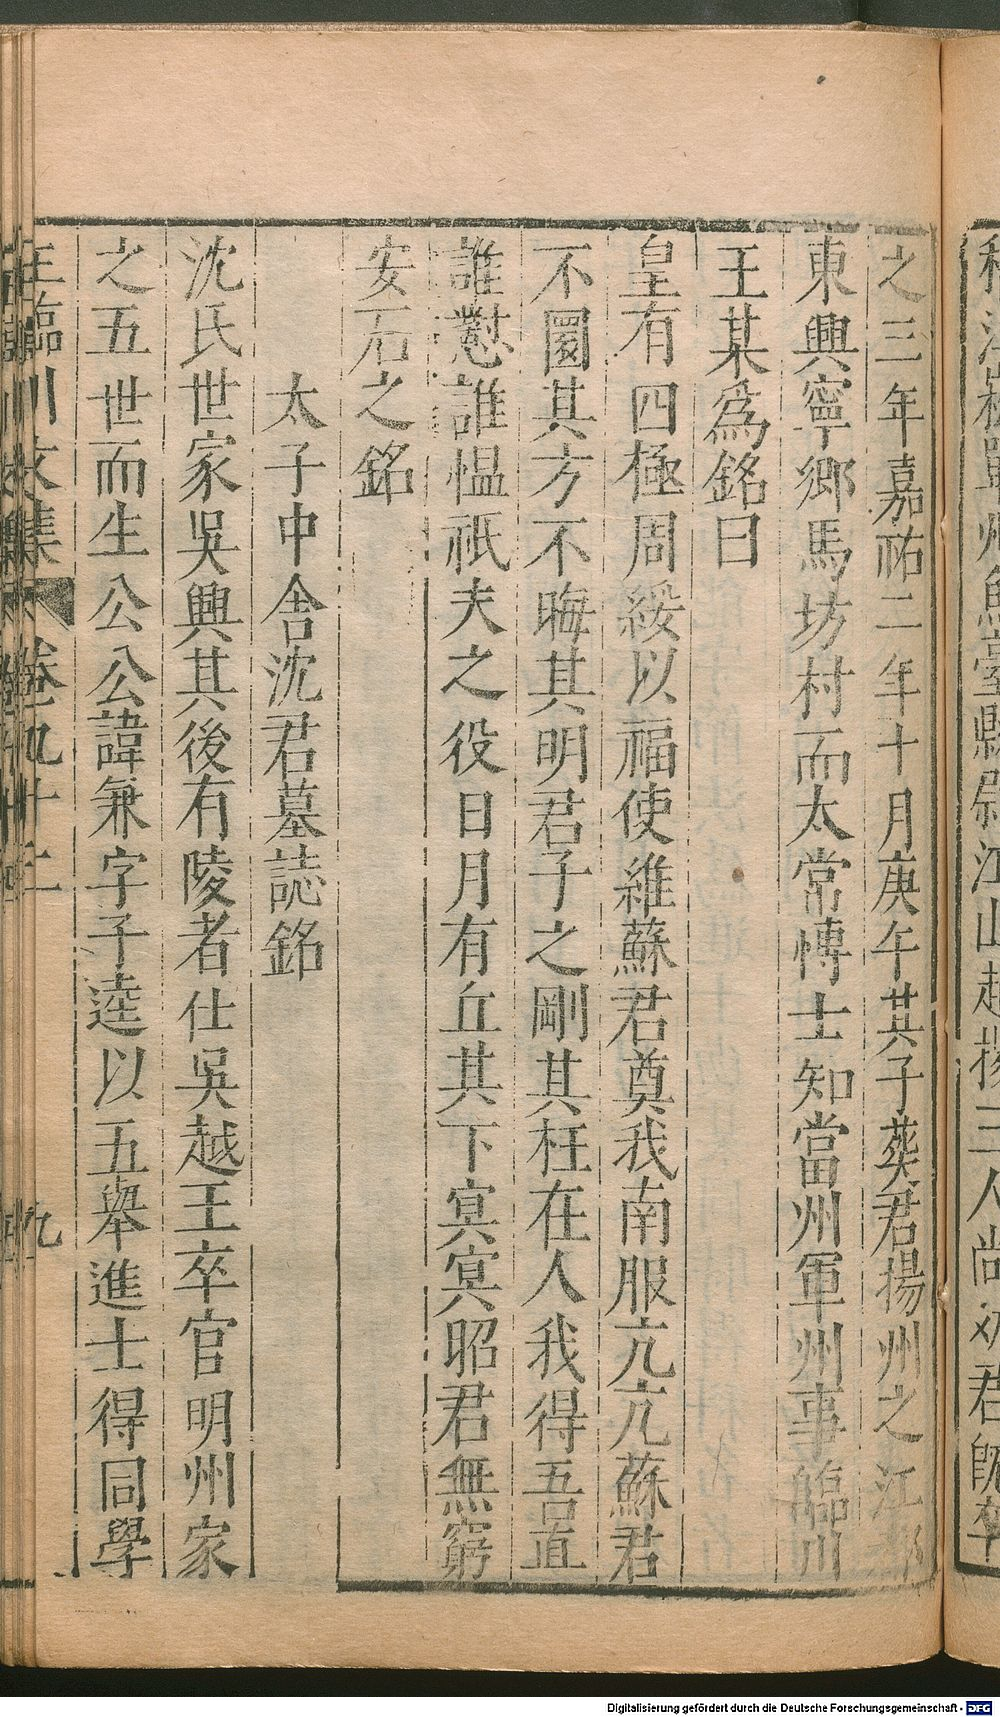 之三年嘉祐二年十月庚午其子葬君揚州之江都
東興寧鄉馬坊村而太常愽士知當州軍州事臨川
王某爲銘曰
皇有四極周綏以福使維蘇君奠我南服亢亢蘇君
不圜其方不晦其明君子之剛其枉在人我得吾直
誰懟誰愠祇夫之役日月有丘其下冥冥昭君無窮
安石之銘
太子中舍沈君墓誌銘
沈氏世家吳興其後有陵者仕吳越王卒官明州家
之五世而生公公諱兼字子逵以五舉進士得同學
王臨川文集 卷九十二 九
Digitalisierung gefördert durch die Deutsche Forschungsgemeinschaft - DFG